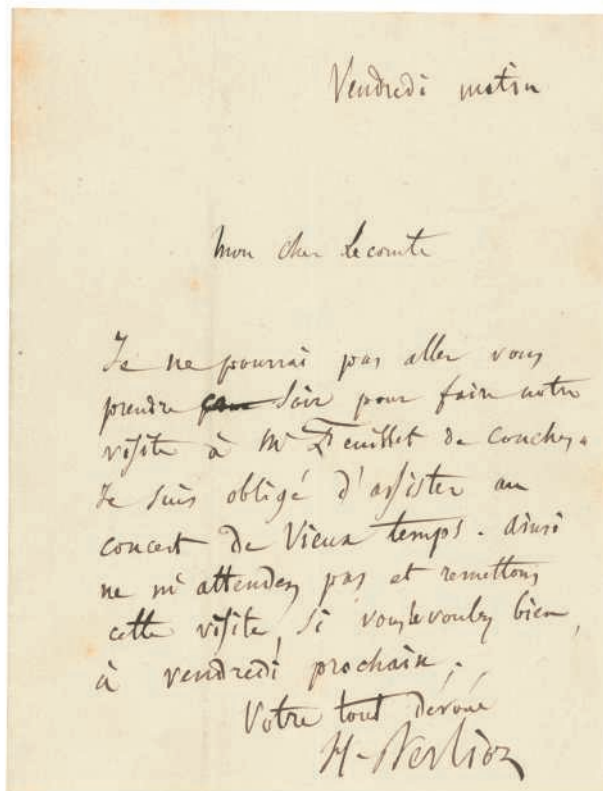 Vendredi matin
Mon cher Lecomte
Je ne pourrai pas aller vous
prendre soir pour faire notre
visite à Mr Feuillet de Conches.
Je suis obligé d'assister au
concert de Vieux temps. ainsi
ne m'attendez pas et remettons
cette visite, si vous le voulez bien,
à vendredi prochain.
Votre tout dévoué
H. Berlioz